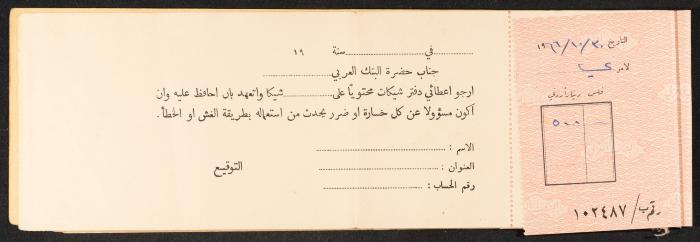 في سنة ١٩
جناب حضرة البنك العربي
ارجو اعطائي دفتر شيكات محتويًا على شيكا واتعهد بان احافظ عليه وان
أكون مسؤولا عن كل خسارة او ضرر يحدث من استعماله بطريقة الغش او الخطأ.
الاسم :
العنوان : التوقيع
رقم الحساب :
التاريخ ١٩٦٦/١٠/٣٠
لامر
فلس دينار أردني
— ٥٠٠
رقم ب/ ١٠٢٤٨٧